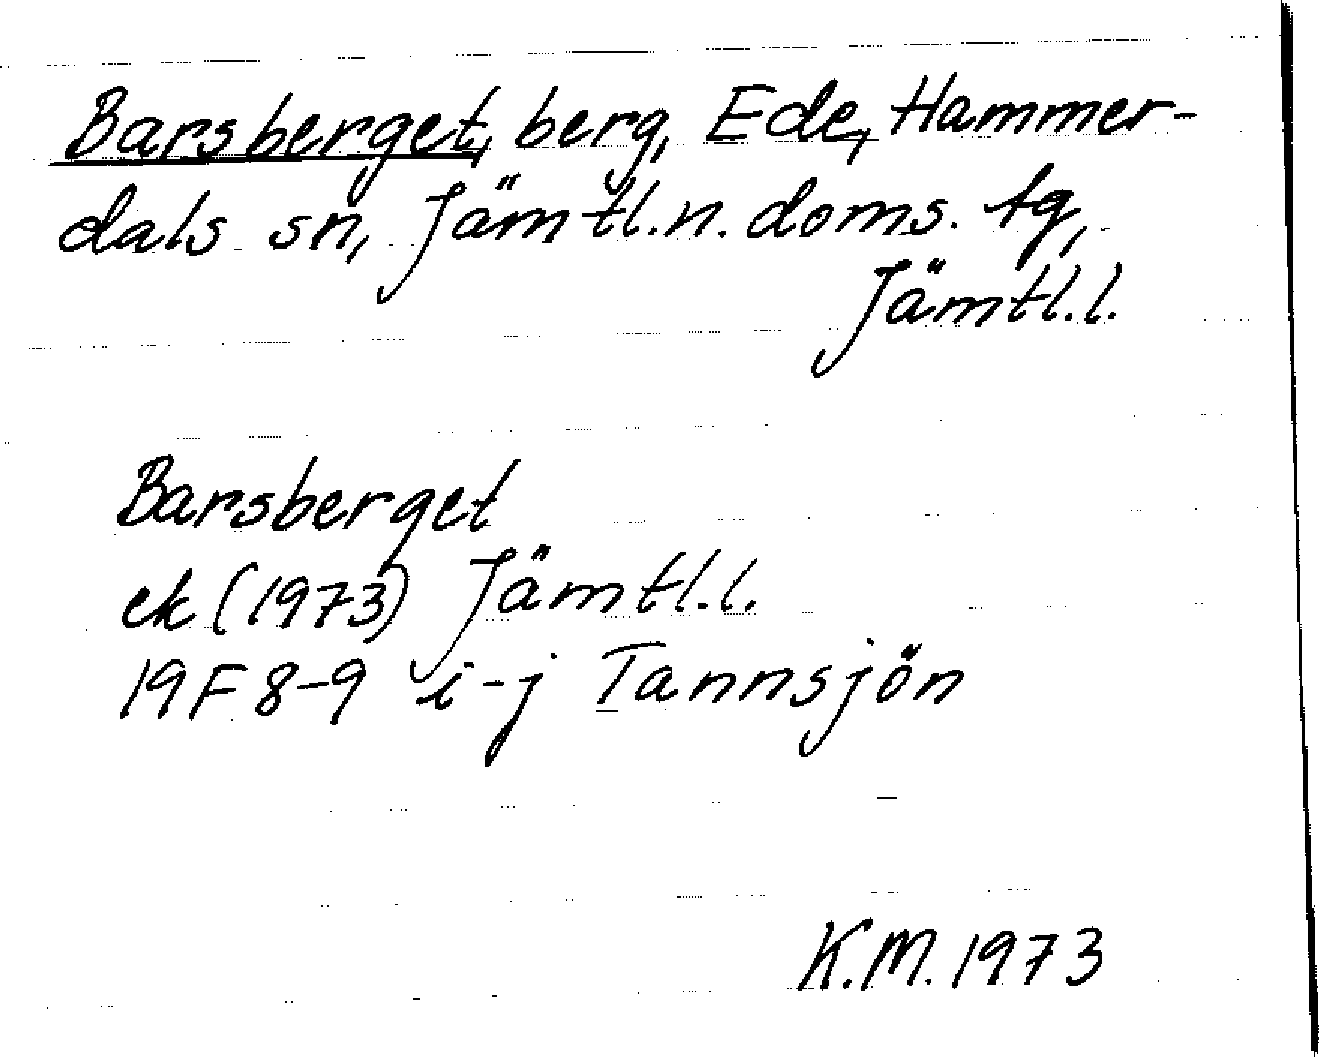 Barsberget, berg, Ede, Hammer-
dals sn, Jämtl.n.doms. tg,
Jämtl.l.
Barsberget
ek (1973) Jämtl.l.
19F 8-9 i-j Tannsjön
K.M. 1973